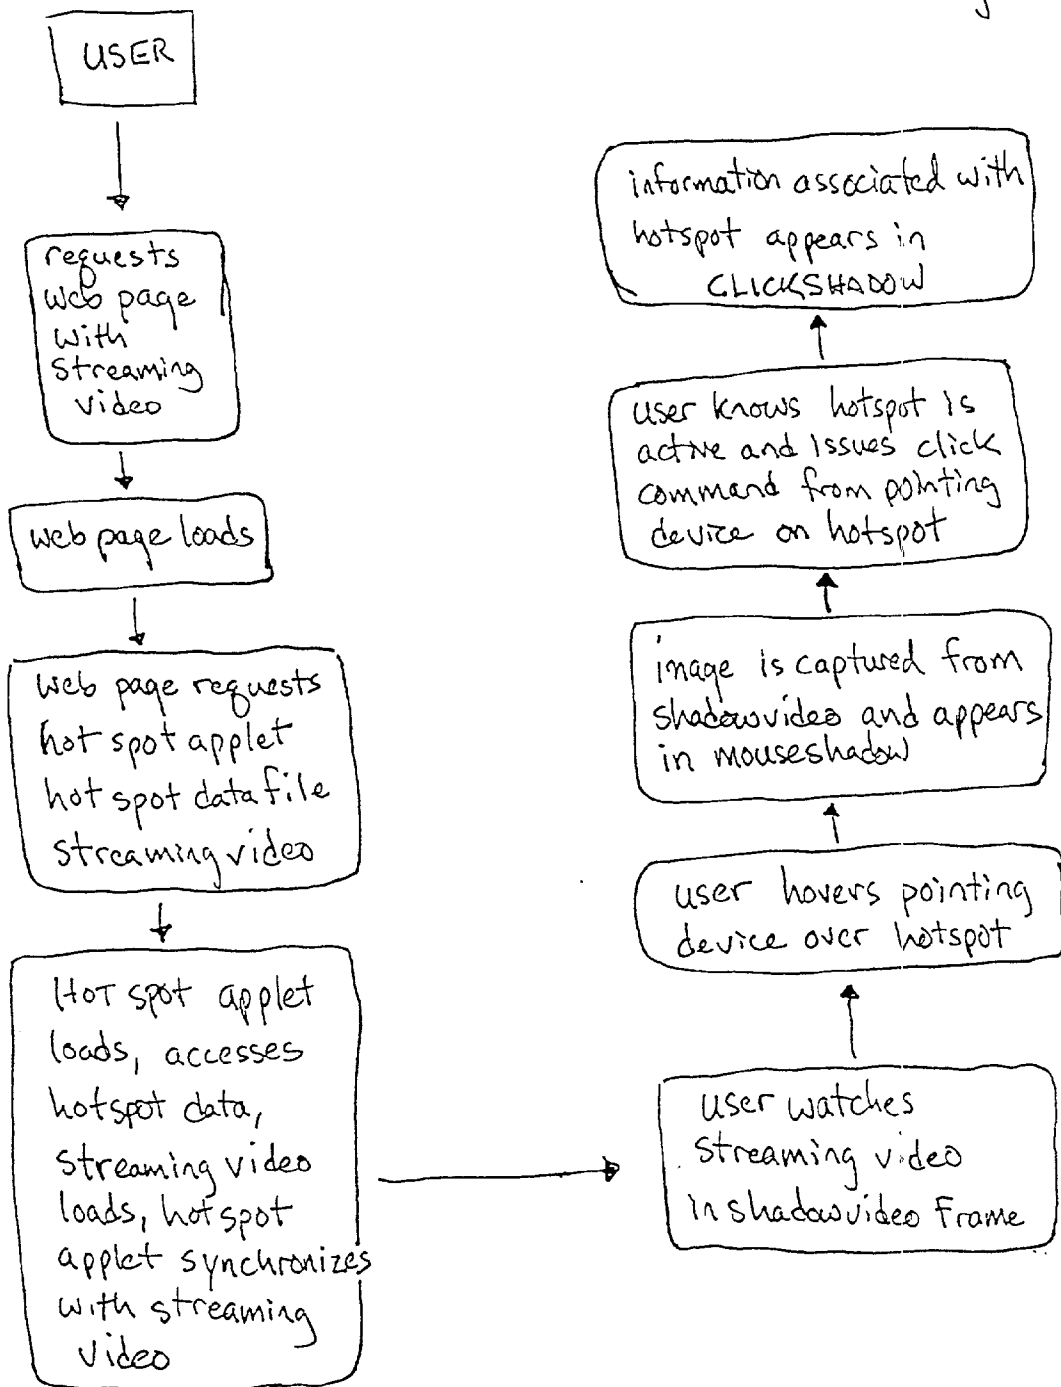 USER
requests
web page
with
streaming
video
web page loads
web page requests
hot spot applet
hot spot data file
streaming video
Hot spot applet
loads, accesses
hotspot data,
streaming video
loads, hotspot
applet synchronizes
with streaming
video
user watches
streaming video
in shadowvideo Frame
user hovers pointing
device over hotspot
image is captured from
shadowvideo and appears
in mouseshadow
user knows hotspot is
active and issues click
command from pointing
device on hotspot
information associated with
hotspot appears in
CLICKSHADOW